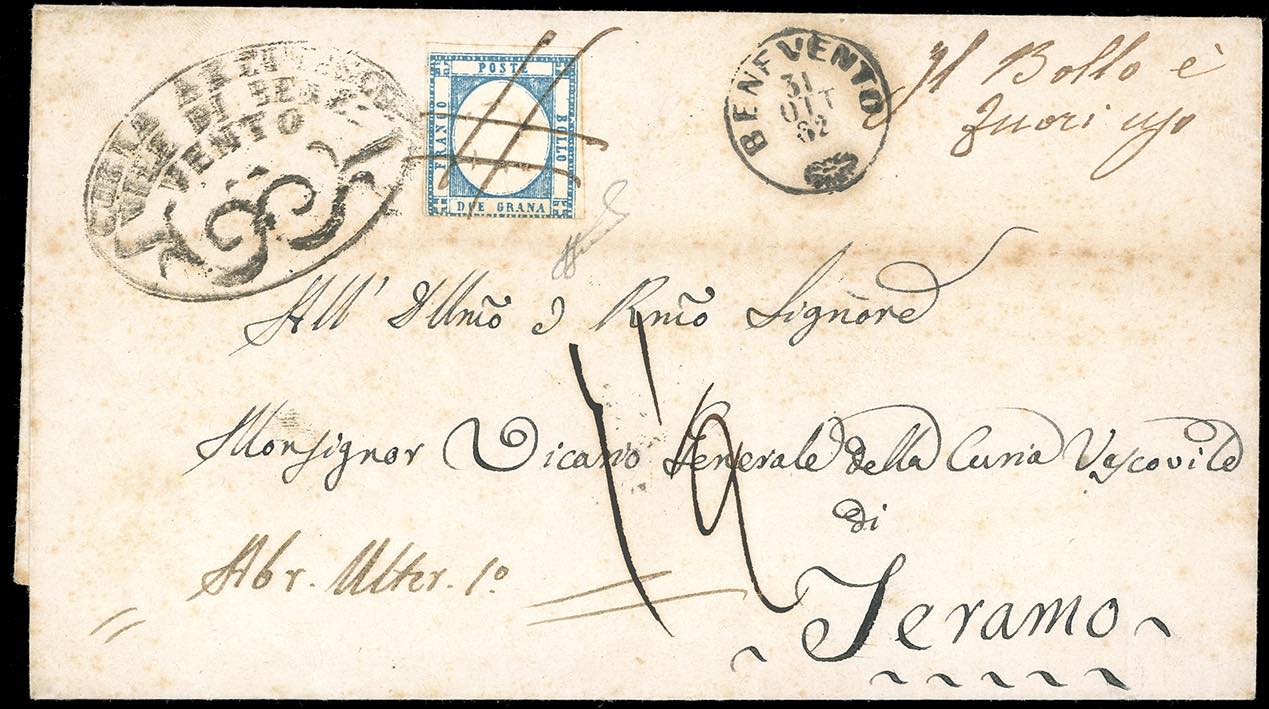 VENTO
POSTE
FRANCO
BOLLO
DUE GRANA
BENEVENTO
31
OTT
62
Il Bollo è
fuori uso
All' Illmo e Rmo Signore
Monsignor Vicario Generale della Curia Vescovile
di
Teramo
Abr. Ulter. 1º